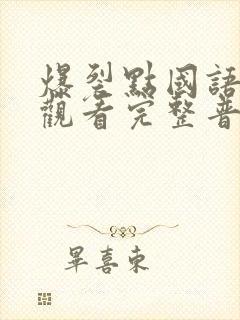 爆裂點國語
觀看完整普
畢喜東